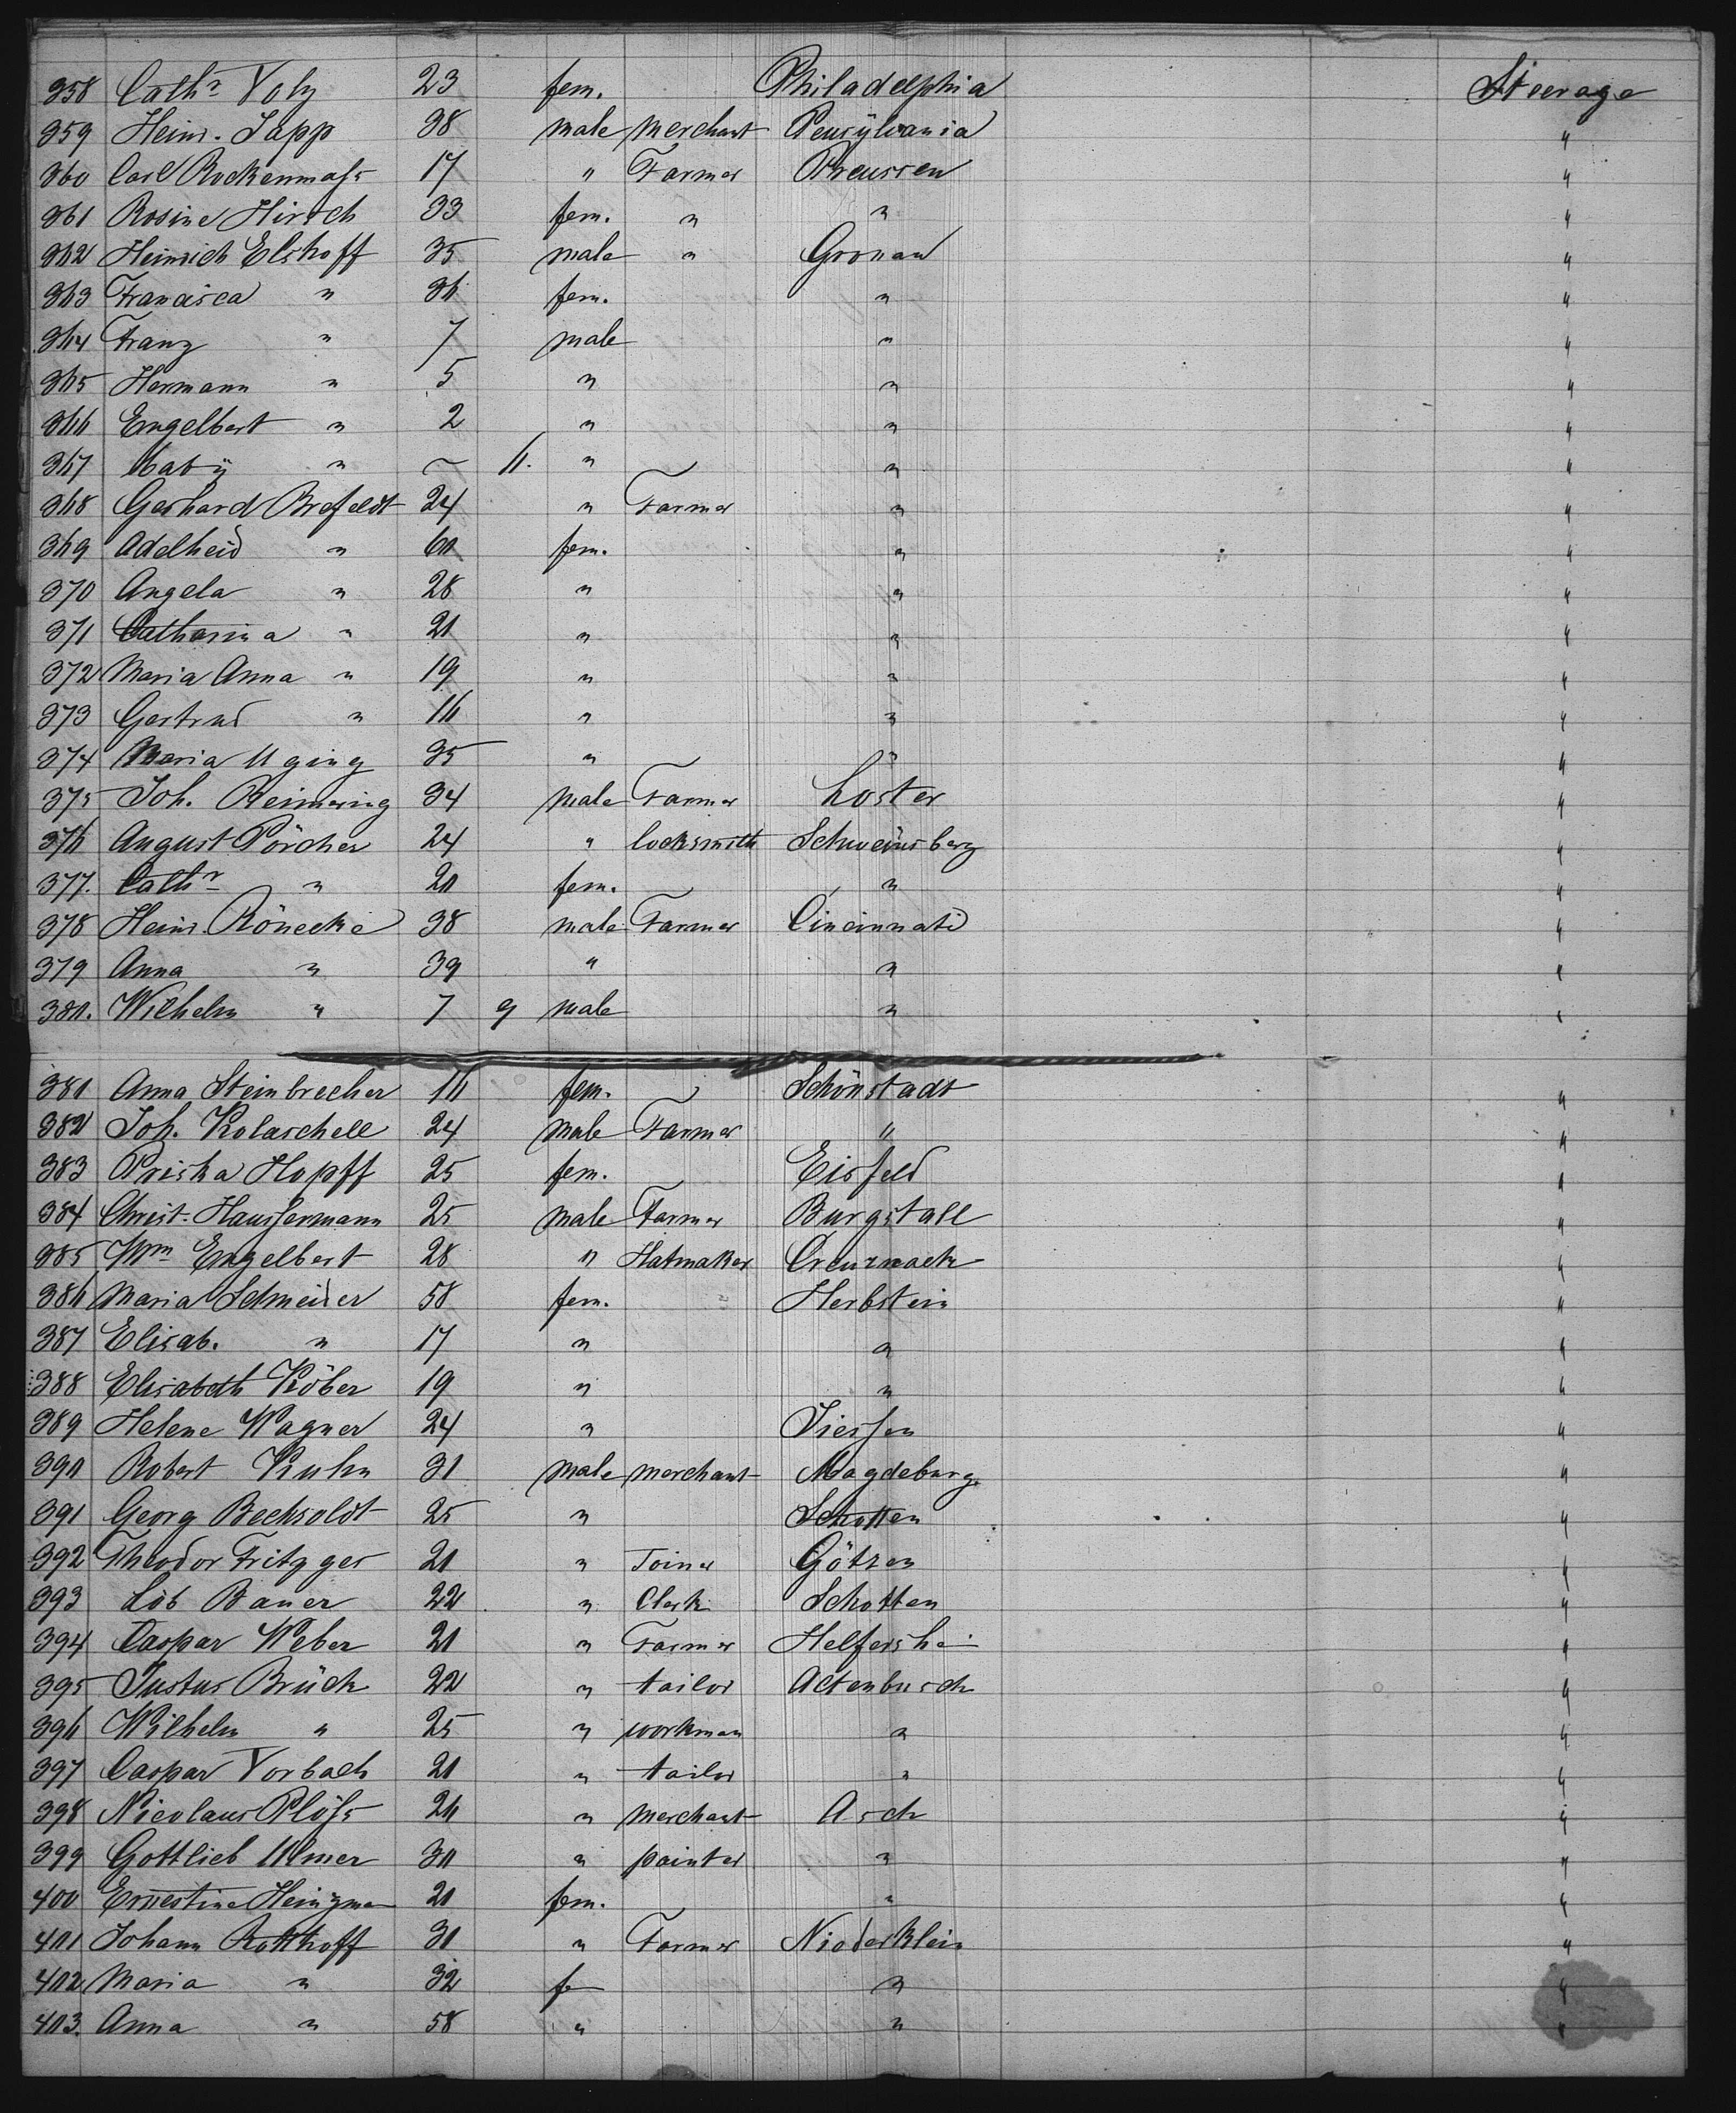 358 Cathr Volz 23 fem. Philadelphia Steerage
359 Heinr. Japp 38 male merchant Pensÿlvania "
360 Carl Rockenmaſs 17 " Farmer Preussen "
361 Rosine Hirsch 33 fem. " " "
362 Heinrich Elshoff 35 male " Gronau "
363 Francisca " 36 fem. " "
364 Franz " 7 male " "
365 Hermann " 5 " " "
366 Engelbert " 2 " " "
367 baby " ~ 11. " " "
368 Gerhard Brefeldt 24 " Farmer " "
369 Adelheid " 60 fem. " "
370 Angela " 28 " " "
371 Catharina " 20 " " "
372 Maria Anna " 19 " " "
373 Gertrud " 16 " " "
374 Maria Uging 35 " " "
375 Joh. Reimering 34 male Farmer Loster "
376 August Pörcher 24 " locksmith Schweinsberg "
377. Cathr " 20 fem. " "
378 Heinr. Rönecke 38 male Farmer Cincinnati "
379 Anna " 39 " " "
380. Wilhelm " 7 9 male " "
381 Anna Steinbrecher 16 fem. Schönstadt "
382 Joh. Kolaschell 24 male Farmer " "
383 Priska Hopff 25 fem. Eisfeld "
384 Christ. Hausſermann 25 male Farmer Burgstall "
385 Wm Engelbert 28 " Hatmaker Creuznach "
386 Maria Schneider 58 fem. Herbstein "
387 Elisab. " 17 " " "
388 Elisabeth Köber 19 " " "
389 Helene Wagner 24 " Giesſen "
390 Robert Kuhn 31 male merchant Magdeburg. "
391 Georg Becksoldt 25 " Schotten "
392 Theodor Fritzges 20 " Joiner Götzen "
393 Löb Bauer 22 " Clerk Schotten "
394 Caspar Weber 20 " Farmer "
395 Justus Brück 22 " tailor Altenburch "
396 Wilhelm " 25 " workman " "
397 Caspar Vorbach 20 " tailor " "
398 Nicolaus Plöſs 26 " merchant Asch "
399 Gottlieb Ulmer 30 " painter " "
400 Ernestine Heinzman 20 fem. " "
401 Johann Rotthoff 30 " Farmer Niederklein "
402 Maria " 32 fe " "
403. Anna " 58 " " "